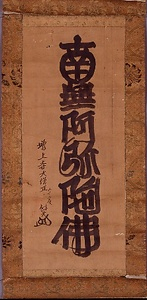 南無阿弥陀佛
増上寺大僧正